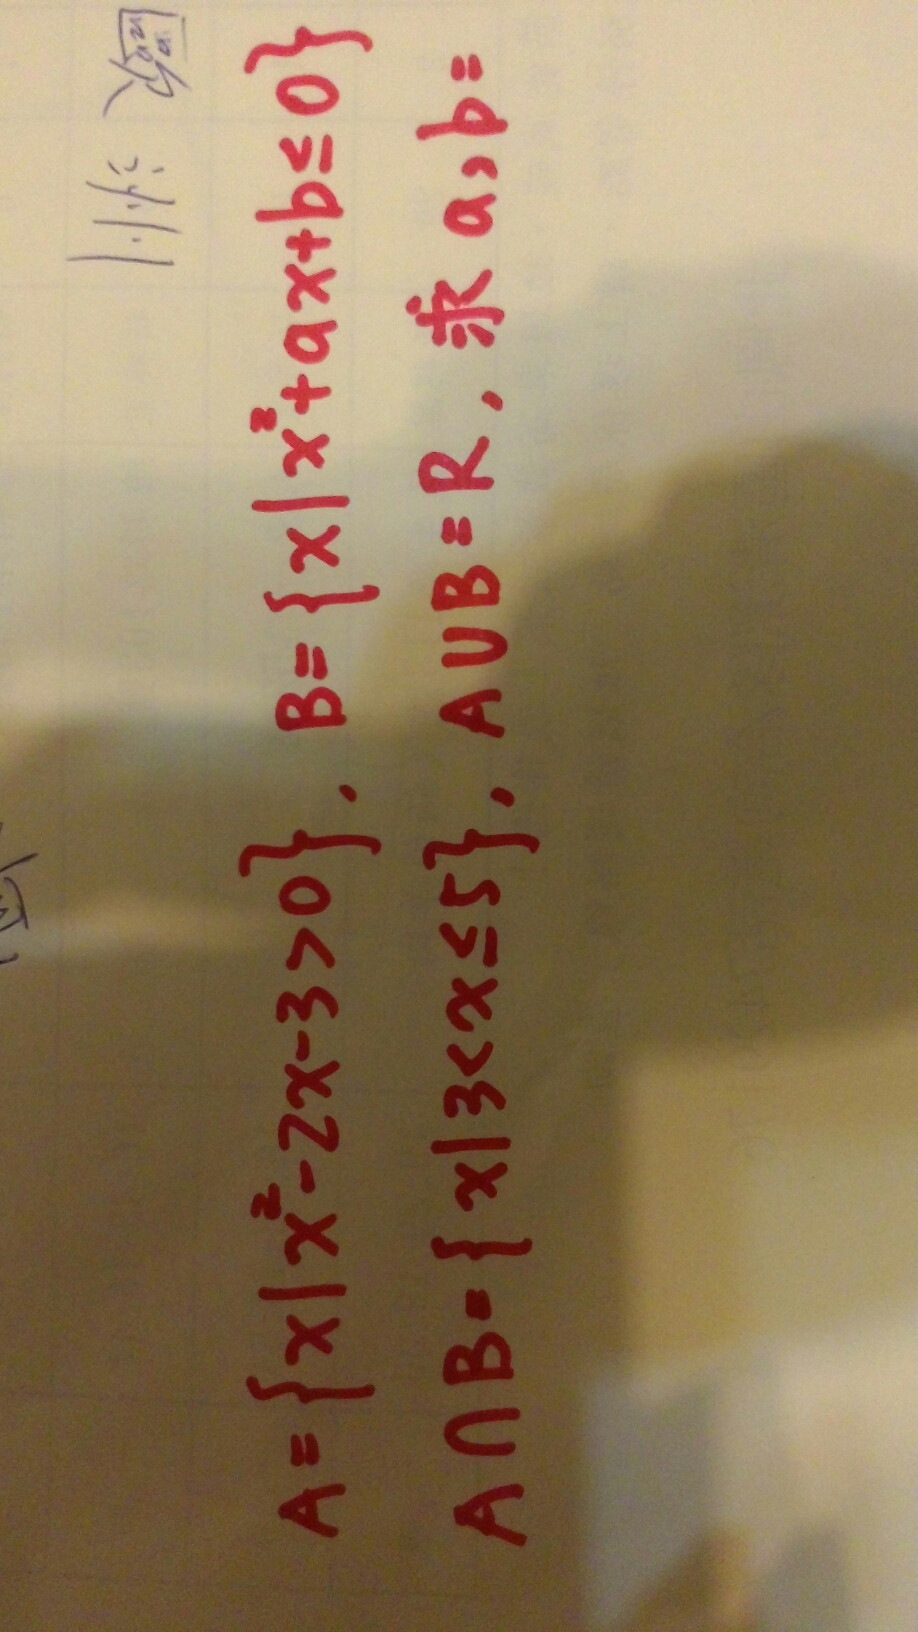 A={x|x²-2x-3>0}. B={x|x²+ax+b≤0}
A∩B={x|3<x≤5}, A∪B=R, 求a,b=